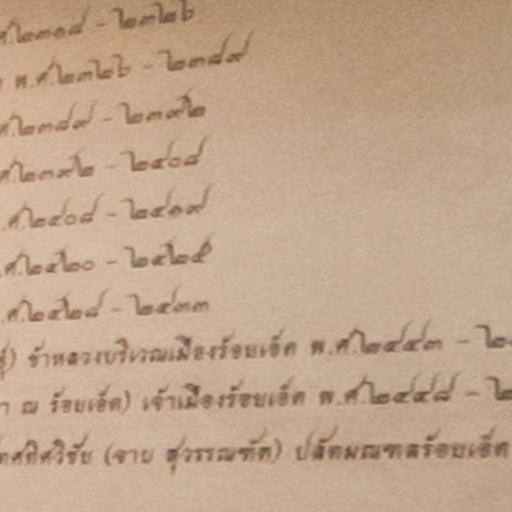 ศ.๒๓๑๘ - ๒๓๒๖
พ.ศ.๒๓๒๖ - ๒๓๘๙
ศ.๒๓๘๙ - ๒๓๙๒
ศ.๒๓๙๒ - ๒๔๐๘
.ศ.๒๔๐๘ - ๒๔๑๙
.ศ.๒๔๒๐ - ๒๔๒๕
.ศ.๒๔๒๘ - ๒๔๓๓
ข้าหลวงบริเวณเมืองร้อยเอ็ด พ.ศ.๒๔๔๓ - ๒
ณ ร้อยเอ็ด) เจ้าเมืองร้อยเอ็ด พ.ศ.๒๔๔๘ - ๒
(จาบ สุวรรณทัต) ปลัดมณฑลร้อยเอ็ด